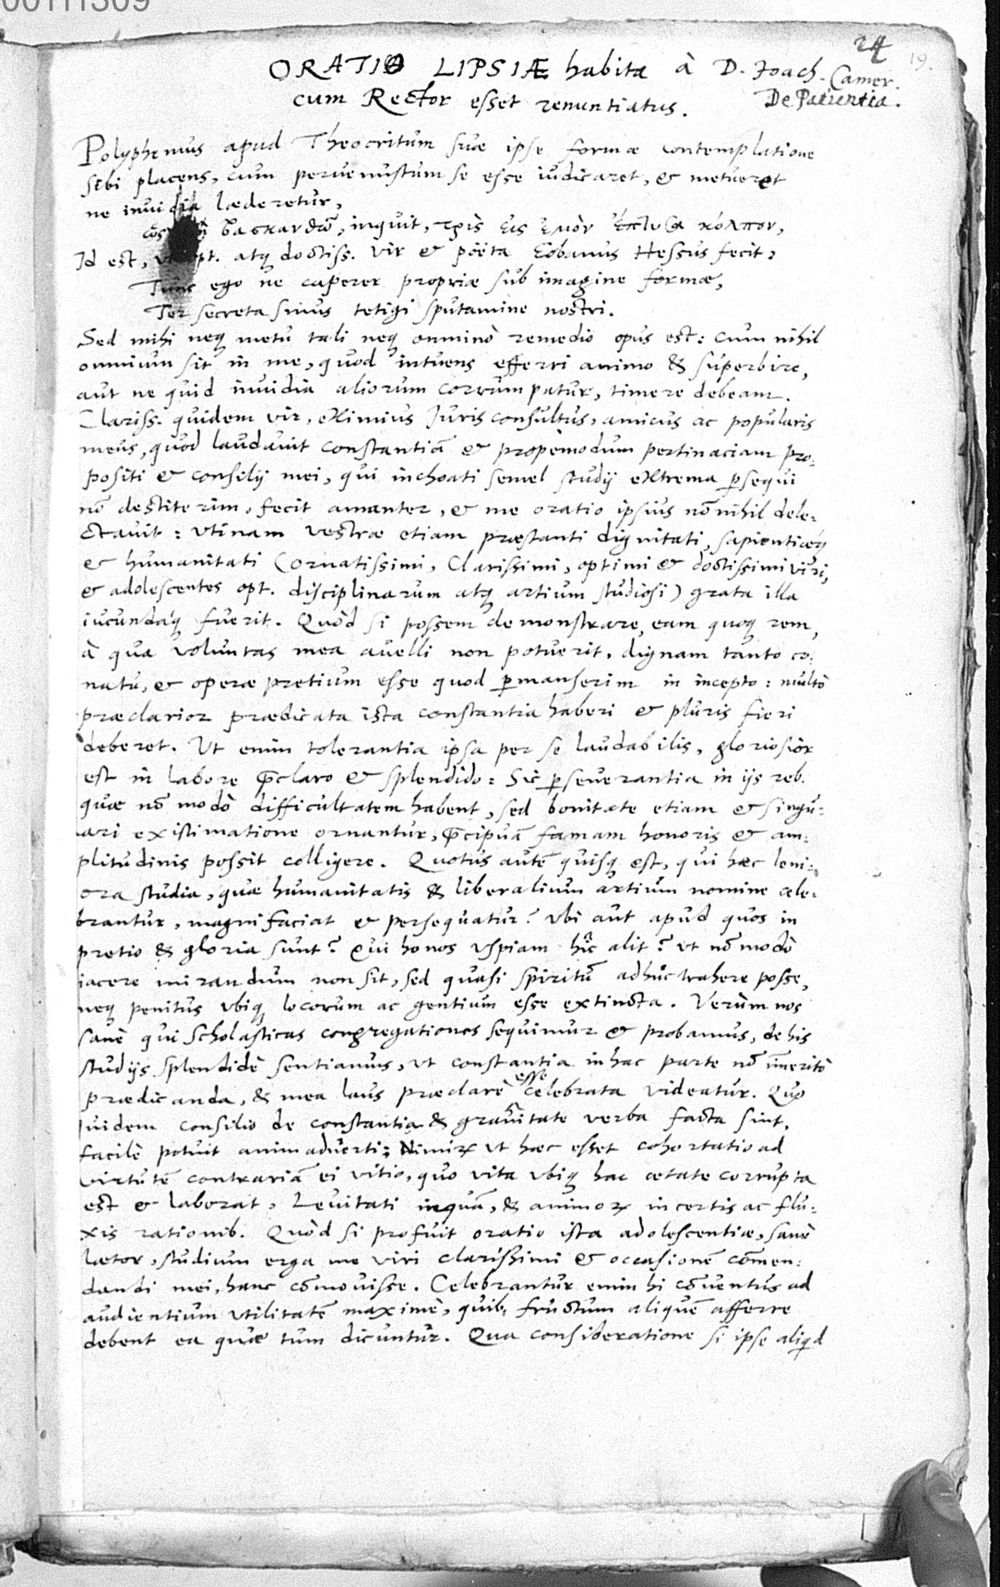 00111309
24
19.
ORATIO LIPSIÆ habita à D. Joach. Camer.
cum Rector esset renuntiatus. De Patientia.
Polyphemus apud Theocritum suæ ipse formæ contemplatione
sibi placens, cum pervenustum se esse iudicaret, & metueret
ne invidia læderetur,
βασκανθῶ, inquit, τρὶς εἰς ἐμὸν ἔπτυσα κόλπον,
Id est, ut opt. atq; doctiss. vir & poëta Eobanus Hessus fecit,
Tunc ego ne caperer propriæ sub imagine formæ,
Ter secreta sinus tetigi sputamine nostri.
Sed mihi neq; metu tali neq; omninò remedio opus est: cum nihil
omnium sit in me, quod intuens efferri animo & superbire,
aut ne quid invidia aliorum corrumpatur, timere debeam.
Clariss. quidem vir, eximius Juris consultus, amicus ac popularis
meus, quod laudavit constantiā & propemodum pertinaciam pro-
positi & consilij mei, qui inchoati semel studij extrema persequi
nō destiterim, fecit amanter, & me oratio ipsius nōnihil dele-
ctavit: utinam vestræ etiam præstanti dignitati, sapientiæq;
& humanitati (ornatissimi, Clarissimi, optimi & doctissimi viri,
& adolescentes opt. disciplinarum atq; artium studiosi) grata illa
iucundaq; fuerit. Quòd si possem demonstrare, eam quoq; rem,
à qua voluntas mea avelli non potuerit, dignam tanto co-
natu, & operæ pretium esse quod permanserim in incepto: multò
præclarior prædicata ista constantia haberi & pluris fieri
deberet. Ut enim tolerantia ipsa per se laudabilis, gloriosior
est in labore p̄claro & splendido: Sic perseverantia in ijs reb.
quæ nō modò difficultatem habent, sed bonitate etiam & singu-
lari existimatione ornantur, p̄cipuā famam honoris & am-
plitudinis possit colligere. Quotus autē quisq; est, qui hæc leni-
ora studia, quæ humanitatis & liberalium artium nomine cele-
brantur, magni faciat & persequatur? ubi aut apud quos in
pretio & gloria sunt? qui honos uspiam hæc alit? ut nō modò
iacere mirandum non sit, sed quasi spiritū adhuc trahere posse,
neq; penitus ubiq; locorum ac gentium esse extincta. Verùm nos
sanè qui scholasticas congregationes sequimur & probamus, de his
studijs splendidè sentiamus, ut constantia in hac parte nō im̄eritò
prædicanda, & mea laus præclarè esse celebrata videatur. Quo
quidem consilio de constantia & gravitate verba facta sint,
facilè potuit animadverti: Nimirū ut hæc esset cohortatio ad
virtutē contrariā ei vitio, quo vita ubiq; hac ætate corrupta
est & laborat, Levitati inquā, & animorū incertis ac flu-
xis rationib. Quòd si profuit oratio ista adolescentiæ, sanè
lætor, studium erga me viri clarissimi & occasionē com̄en-
dandi mei, hanc com̄ovisse. Celebrantur enim hi cōventus ad
audientium utilitatē maximè, quib, fructum aliquē afferre
debent ea quæ tum dicuntur. Qua consideratione si ipse aliquid